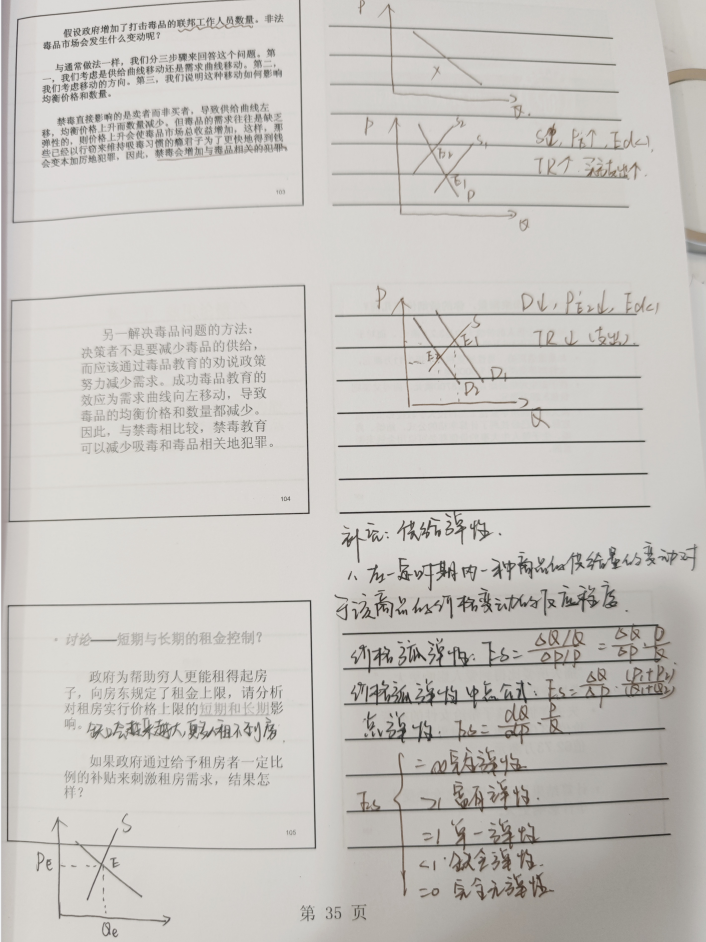 假设政府增加了打击毒品的联邦工作人员数量。非法
毒品市场会发生什么变动呢?
与通常做法一样，我们分三步骤来回答这个问题。第
一，我们考虑是供给曲线移动还是需求曲线移动。第二，
我们考虑移动的方向。第三，我们说明这种移动如何影响
均衡价格和数量。
禁毒直接影响的是卖者而非买者，导致供给曲线左
移，均衡价格上升而数量减少。但毒品的需求往往是缺乏
弹性的，则价格上升会使毒品市场总收益增加，这样，那
些已经以行窃来维持吸毒习惯的瘾君子为了更快地得到钱
会变本加厉地犯罪，因此，禁毒会增加与毒品相关的犯罪。
103
P
Q
P
S2
S1
E2
E1
D
Q
S↓, PE↑, Ed<1
TR↑
另一解决毒品问题的方法:
决策者不是要减少毒品的供给，
而应该通过毒品教育的劝说政策
努力减少需求。成功毒品教育的
效应为需求曲线向左移动，导致
毒品的均衡价格和数量都减少。
因此，与禁毒相比较，禁毒教育
可以减少吸毒和毒品相关地犯罪。
104
P
S
E1
E2
D1
D2
Q
D↓, PE2↓, Ed<1
TR↓ (支出).
补充: 供给弹性.
1. 在一定时期内一种商品的供给量的变动对
于该商品的价格变动的反应程度.
价格弧弹性: Es= ΔQ/Q / ΔP/P = ΔQ/ΔP · P/Q
价格弧弹性中点公式: Es= ΔQ/ΔP · (P1+P2)/(Q1+Q2)
点弹性: Es= dQ/dP · P/Q
Es
=∞ 完全弹性
>1 富有弹性.
=1 单一弹性
<1 缺乏弹性.
=0 完全无弹性
• 讨论——短期与长期的租金控制?
政府为帮助穷人更能租得起房
子，向房东规定了租金上限，请分析
对租房实行价格上限的短期和长期影
响。缺口会越来越大,更多人租不到房.
如果政府通过给予租房者一定比
例的补贴来刺激租房需求，结果怎
样?
105
S
PE
E
QE
第 35 页